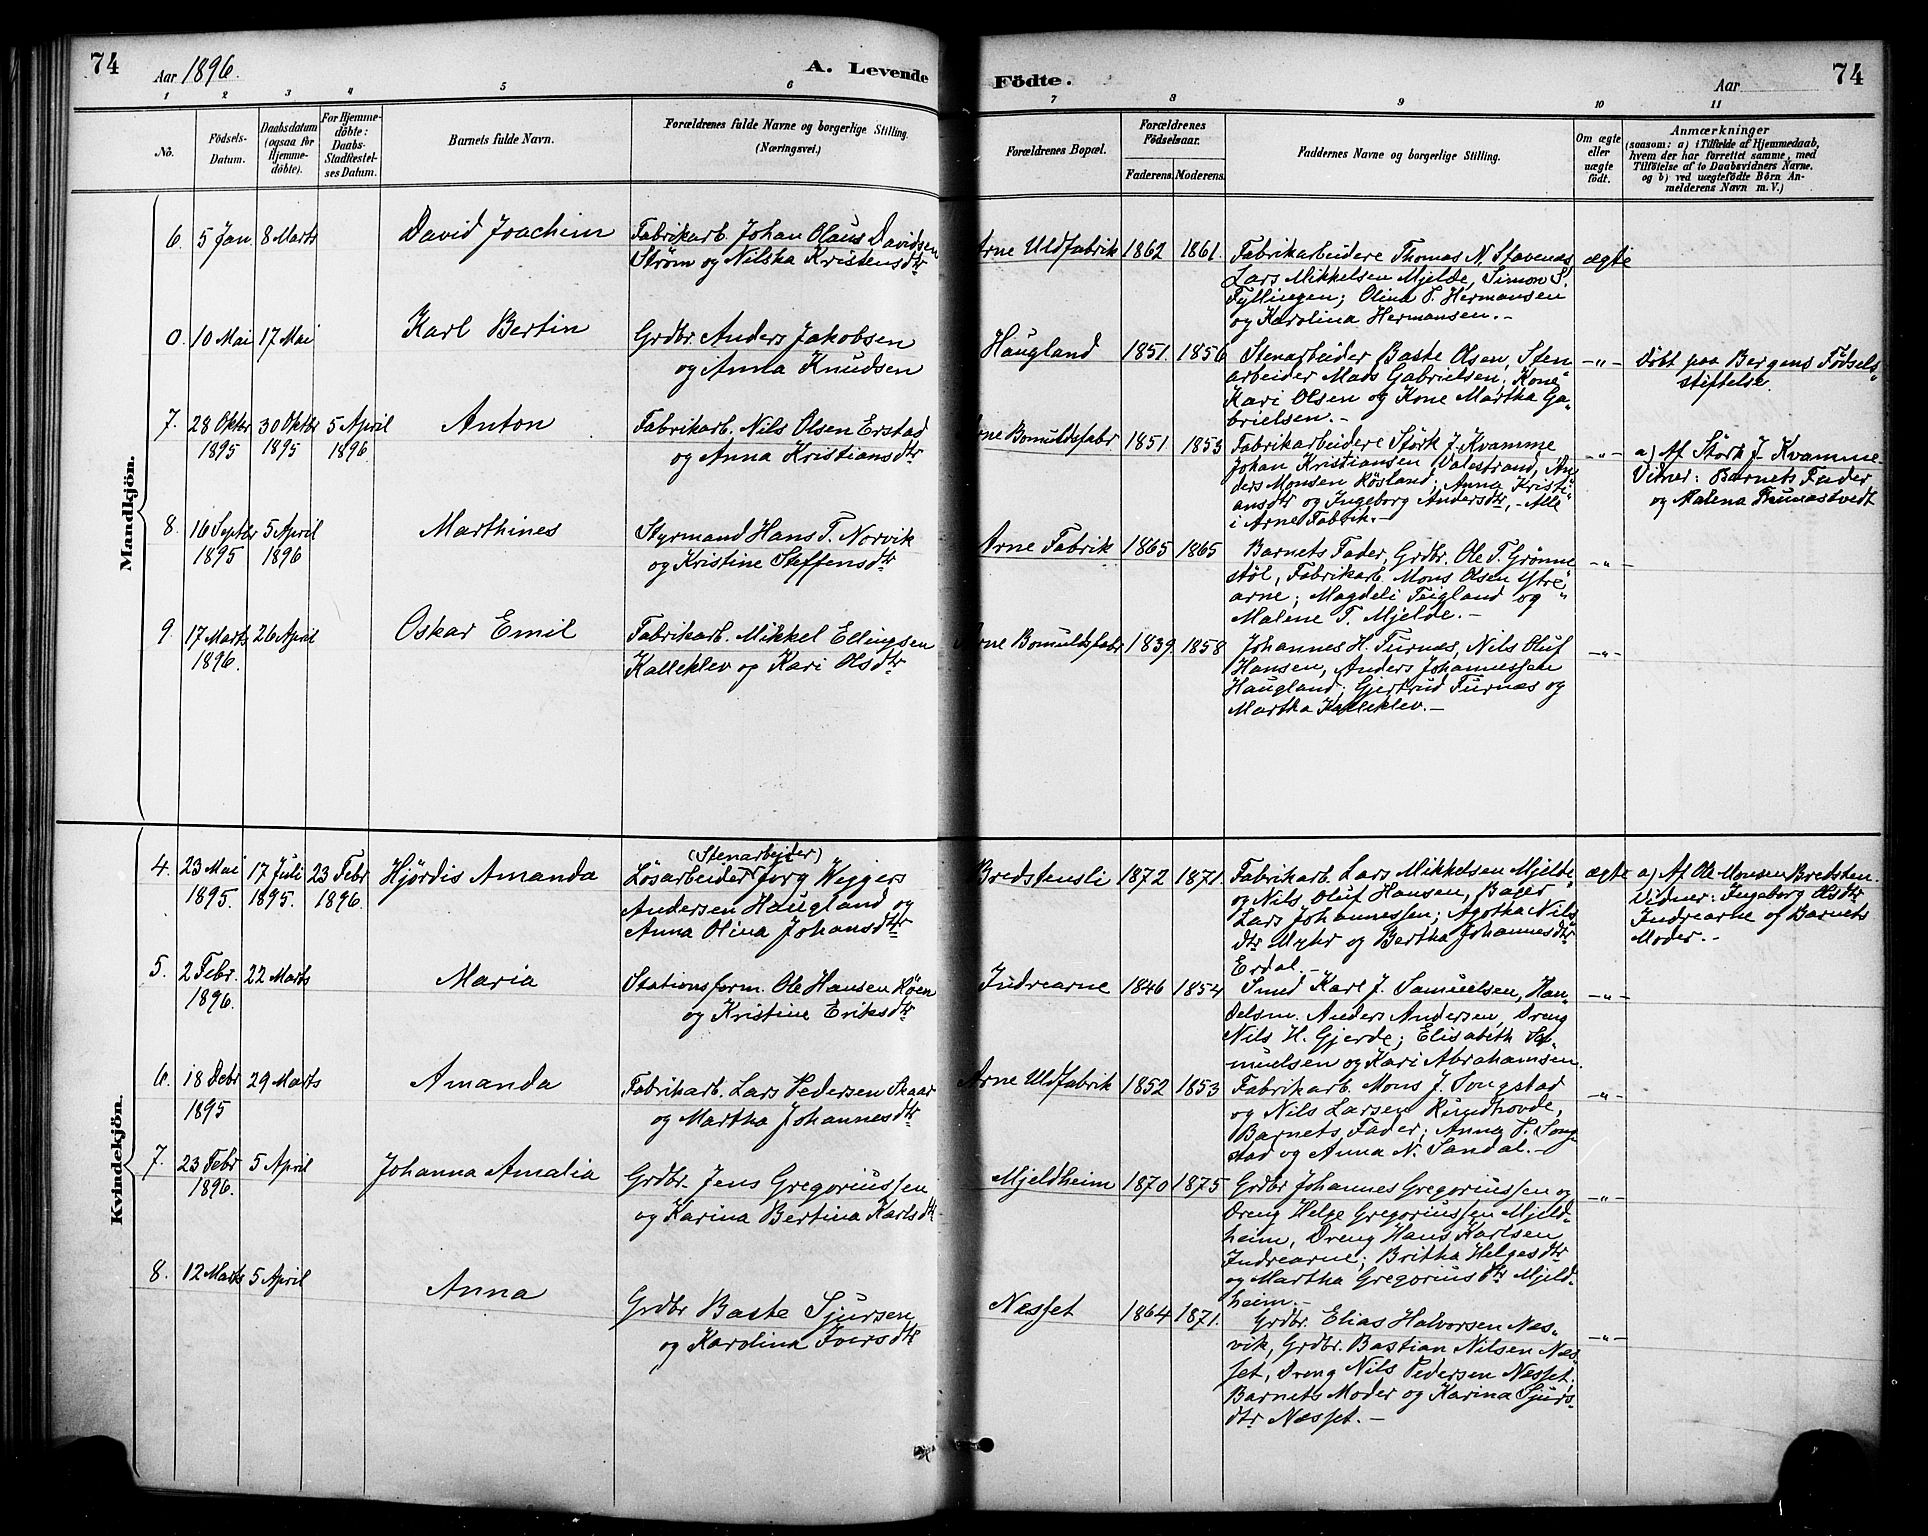 74
Aar 1896.
A. Levende
Födte.
Aar
74
1 2 3 4 5 6 7 8 9 10 11
No.
Födsels-
Datum.
Daabsdatum
(ogsaa for
Hjemme-
döbte).
For Hjemme-
döbte:
Daabs-
Stadfestel-
ses Datum.
Barnets fulde Navn.
Forældrenes fulde Navne og borgerlige Stilling.
(Næringsvei.)
Forældrenes Bopæl.
Forældrenes
Födselsaar.
Faderens. Moderens.
Faddernes Navne og borgerlige Stilling.
Om ægte
eller
uægte
födt.
Anmærkninger
(saasom: a) i Tilfælde af Hjemmedaab,
hvem der har forrettet samme, med
Tilföielse af to Daabsvidners Navne.
og b) ved uægtefödte Börn An-
melderens Navn m. V.)
Mandkjön.
6. 5 Jan 8 Marts
David Joachim
Fabrikarb. Johan Olaus Davidsen
Strøm og Nilska Kristensdtr
Arne Uldfabrik 1862 1861.
Fabrikarbeidere Thomas N. Stavenes
Lars Mikkelsen Mjelde, Simon S.
Fyllingen; Olina T. Hermansen
og Karolina Hermansen. -
ægte
0. 10 Mai 17 Mai
Karl Bertin
Grdbr. Anders Jakobsen
og Anna Knudsen
Haugland 1851. 1856
Stenarbeider Baste Olsen, Sten
arbeider Mads Gabrielsen; Kone
Kari Olsen og Kone Martha Ga„
brielsen. -
-„-
Döbt paa Bergens Födsels„
stiftelse.
7. 28 Oktbr 30 Oktbr 5 April
1895 1895 1896
Anton
Fabrikarb. Nils Olsen Erstad
og Anna Kristiansdtr
Arne Bomuldsfabr 1851 1853
Fabrikarbeidere Störk J. Kvamme
Johan Kristiansen Valestrand, An„
ders Monsen Røsland; Anna Kristi„
ansdtr og Ingeborg Andersdtr, - Alle
i Arne Fabrik. -
-„-
a) Af Störk J. Kvamme-
Vidner: Barnets Fader
og Malena
8. 16 Septbr 5 April
1895 1896
Marthines
Styrmand Hans T. Norvik
og Kristine Steffensdtr
Arne Fabrik 1865 1865
Barnets Fader, Grdbr. Ole T. Grønne
støl, Fabrikarb. Mons Olsen Ytre„
arne; Magdeli Teigland og
Malene T. Mjelde. -
-„-
9. 17 Marts 26 April
1896.
Oskar Emil
Fabrikarb. Mikkel Ellingsen
Kalleklev og Kari Olsdtr
Arne Bomuldsfabr 1839. 1858
Johannes H. Furnæs, Nils Oluf
Hansen, Anders Johannessen
Haugland; Gjertrud Furnæs og
Martha Kalleklev. -
-„-
Kvindekjön.
4. 23 Mai 17 Juli 23 Febr
1895. 1895. 1896.
Hjördis Amanda
(Stenarbejder)
Løsarbeider Jørg Wiggers
Andersen Haugland og
Anna Olina Johansdtr
Bredstensli 1872 1871.
Fabrikarb. Lars Mikkelsen Mjelde
og Nils Oluf Hansen, Bager
Lars Johannessen; Agotha Nils
dtr Myhr og Bertha Johannesdtr
Erdal. -
ægte
a) Af Ole Monsen Bredsten.
Vidner: Ingeborg Olsdtr
Indrearne og Barnets
Moder. -
5. 2 Febr. 22 Marts
1896.
Maria
Stationsform. Ole Hansen Röen
og Kristine Eriksdtr
Indrearne 1846 1854
Smed Karl J. Samuelsen, Han„
delsm. Anders Andersen, Dreng
Nils H. Gjerde; Elisabeth Sa„
muelsen og Kari Abrahamsen.
-„-
6. 18 Debr 29 Marts
1895
Amanda
Fabrikarb. Lars Pedersen Skaar
og Martha Johannesdtr
Arne Uldfabrik 1852 1853
Fabrikarb. Mons J. Songstad
og Nils Larsen Rundhovde,
Barnets Fader; Anna P. Song
stad og Anna N. Sandal. -
-„-
7. 23 Febr 5 April
1896.
Johanna Amalia
Grdbr. Jens Gregoriussen
og Karina Bertina Karlsdtr
Mjeldheim 1870 1875
Grdbr Johannes Gregoriussen og
Dreng Helge Gregoriussen Mjeld„
heim, Dreng Hans Karlsen
Indrearne; Britha Helgesdtr
og Martha Gregoriusdtr Mjeld„
heim. -
-„-
8. 12 Marts 5 April
Anna
Grdbr Baste Sjursen
og Karolina Iversdtr
Nesset 1864 1871.
Grdbr. Elias Halvorsen Næs„
vik, Grdbr. Bastian Nilsen Næs„
set, Dreng Nils Pedersen Næsset;
Barnets Moder og Karina Sjurs„
dtr Næsset. -
-„-